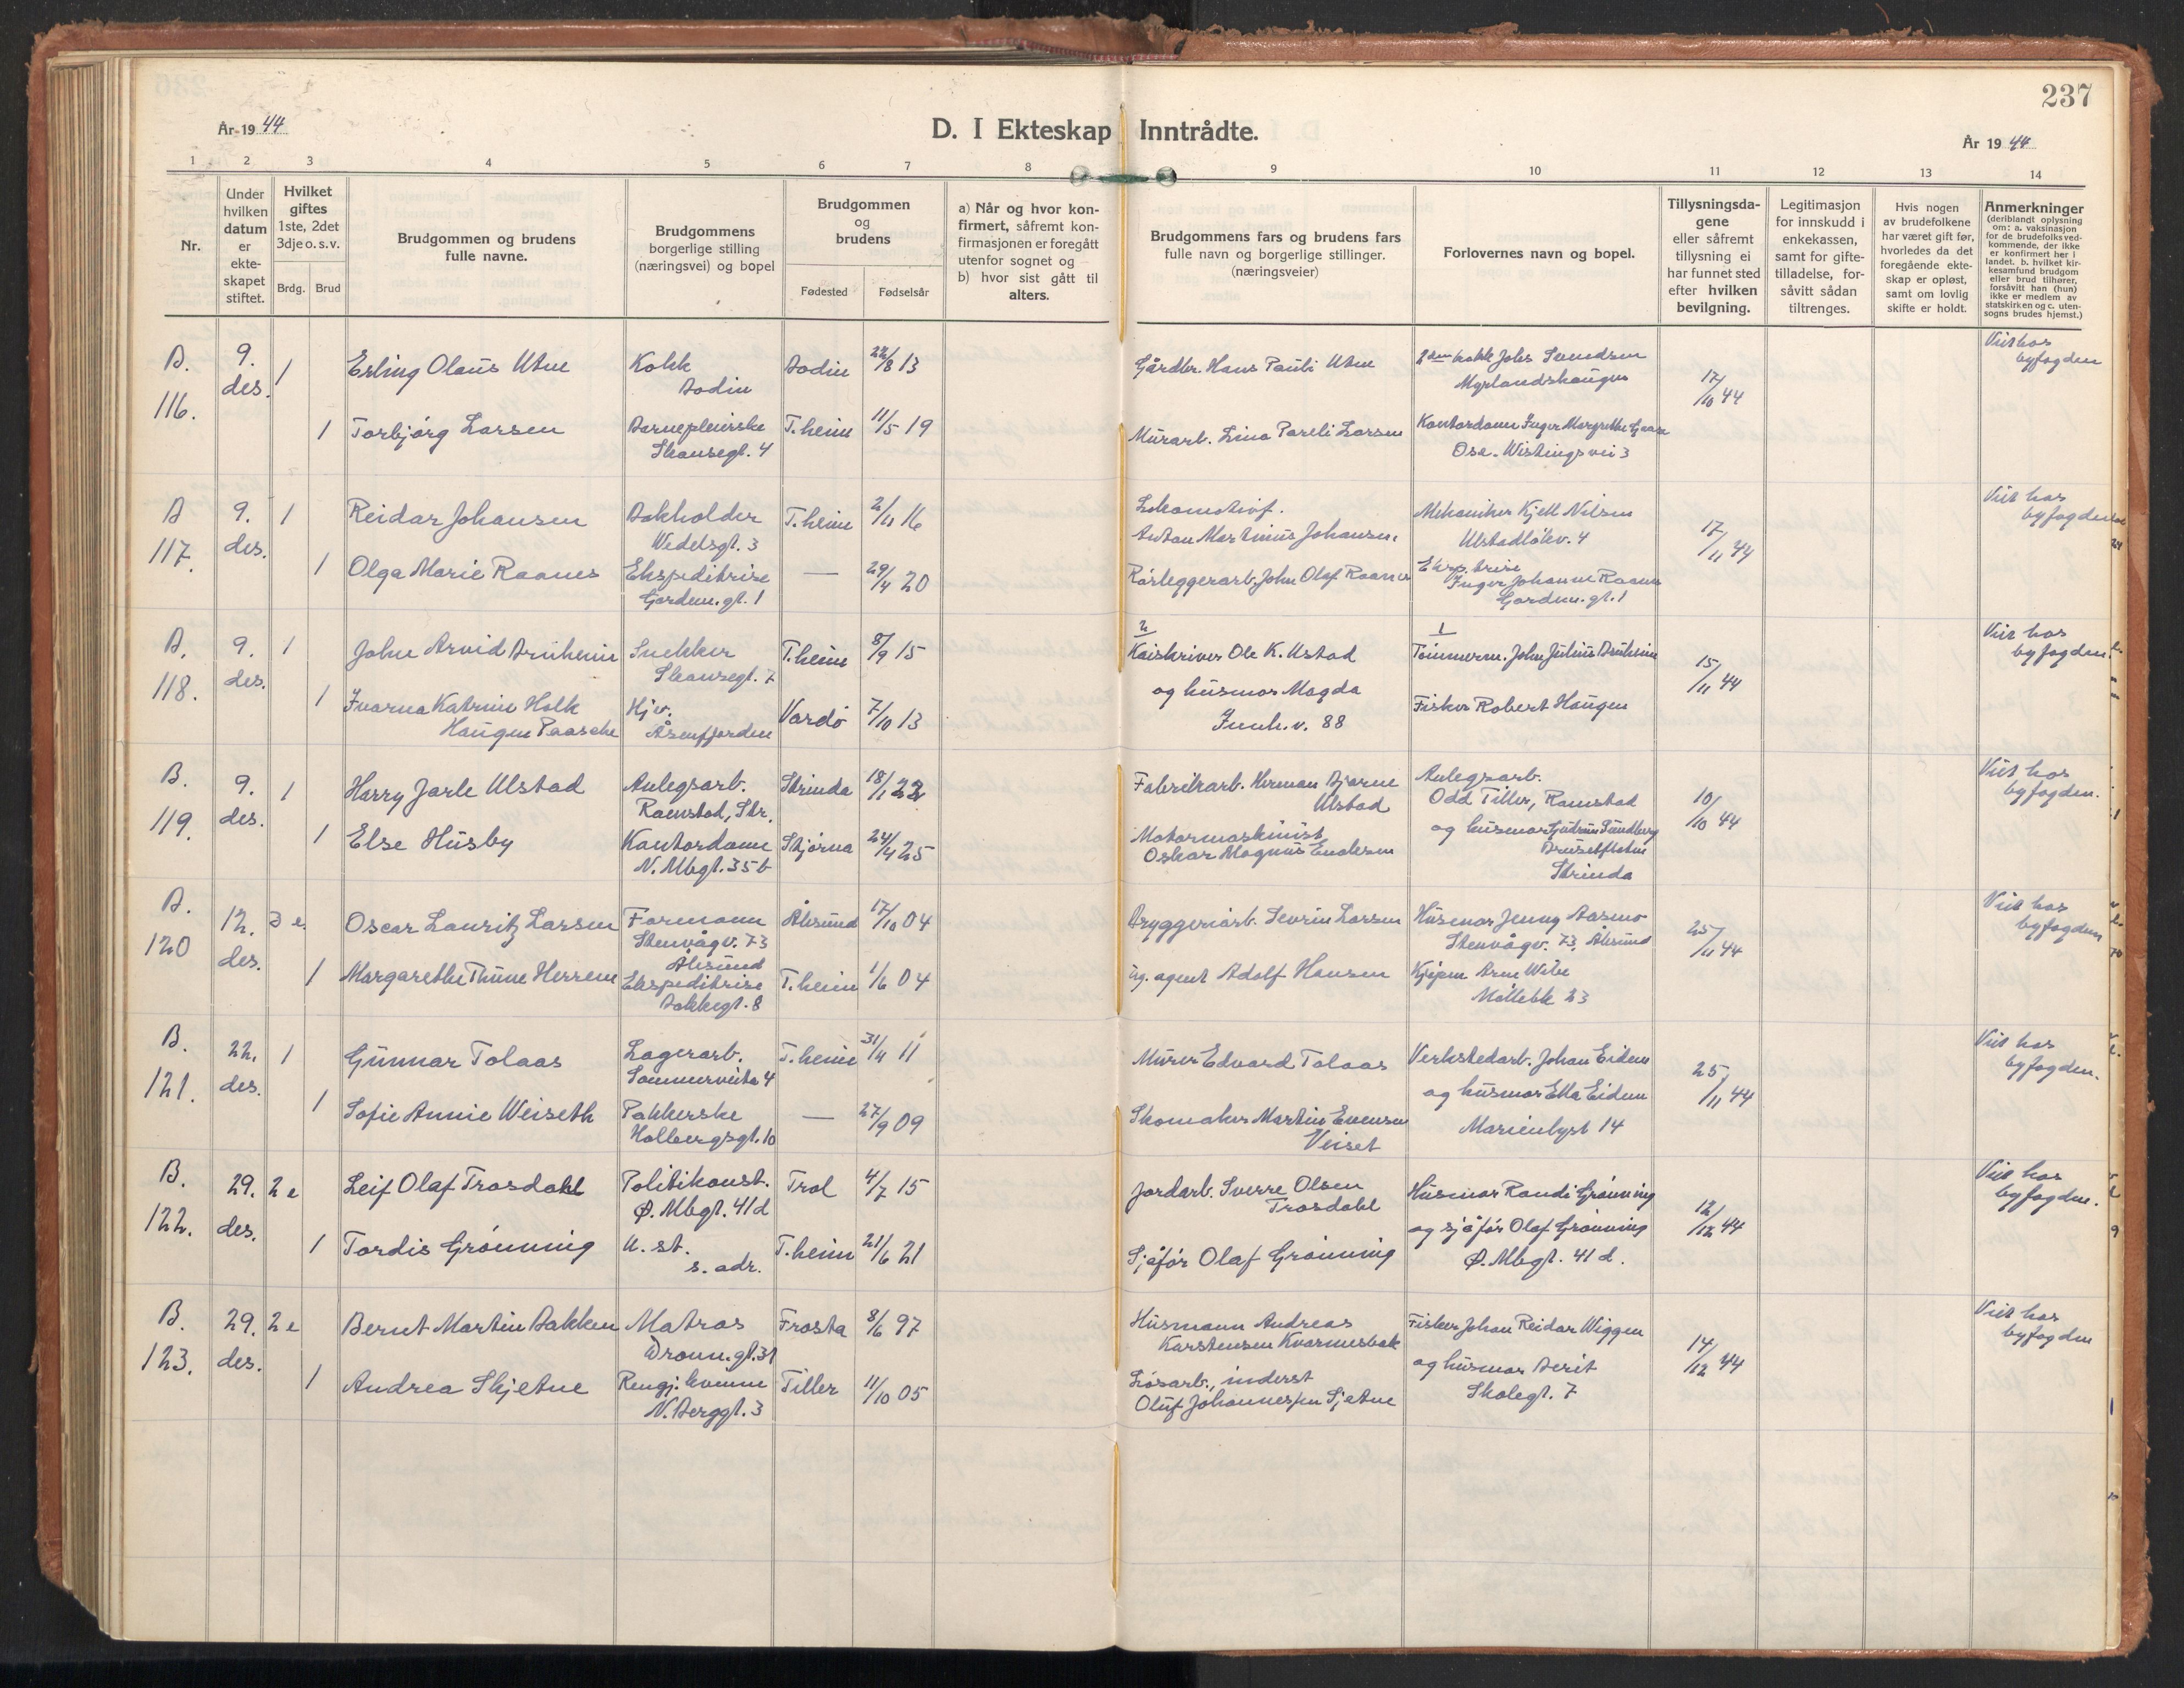 237
År 1944
D. I Ekteskap Inntrådte.
År 1944
1 2 3 4 5 6 7 8 9 10 11 12 13 14
Nr.
Under hvilken datum er ekte-skapet stiftet.
Hvilket giftes 1ste, 2det 3dje o. s. v.
Brdg. Brud
Brudgommen og brudens fulle navne.
Brudgommens borgerlige stilling (næringsvei) og bopel
Brudgommen og brudens
Fødested Fødselsår
a) Når og hvor kon-firmert, såfremt kon-firmasjonen er foregått utenfor sognet og
b) hvor sist gått til alters.
Brudgommens fars og brudens fars fulle navn og borgerlige stillinger. (næringsveier)
Forlovernes navn og bopel.
Tillysningsda-gene eller såfremt tillysning ei har funnet sted efter hvilken bevilgning.
Legitimasjon for innskudd i enkekassen, samt for gifte-tilladelse, for-såvitt sådan tiltrenges.
Hvis nogen av brudefolkene har været gift før, hvorledes da det foregående ekte-skap er opløst, samt om lovlig skifte er holdt.
Anmerkninger (deriblandt oplysning om: a. vaksinasjon for de brudefolks ved-kommende, der ikke er konfirmert her i landet. b. hvilket kir-kesamfund brudgom eller brud tilhører, forsåvitt han (hun) ikke er medlem av statskirken og c. uten-sogns brudes hjemst.)
116. 9. des. 1 Erling Olaus Utne Kokk Bodin Bodin 22/8 13 Hans Pauli Utne 17/10 44 Viet hos byfogden
1 Torbjørg Larsen Barnepleierske Skansegt. 4 T.heim 11/5 19 Murarb. Larsen
117. 9. des. 1 Reidar Johansen Bokholder Wedelsgt. 3 T.heim 2/11 16 Lokomotivf. Anton Martinus Johansen. Mekaniker Kjell Nilsen 17/11 44 Viet hos byfogden
1 Olga Marie Raanes Ekspeditrise Gardem.gt. 1 — 29/4 20 Rørleggerarb. John Olaf Raanes Inger Johanne Raanes Gardem.gt. 1
118. 9. des. 1 John Arvid Snekker Skansegt. 7 T.heim 8/9 15 2 Kaiskriver Ole K. Ustad 1 Tømmerm. John Julius 15/11 44 Viet hos byfogden.
1 Ivarna Katrine Holk Haugen Paasche Hjv. Åsenfjorden Vardø 7/10 13 og husmor Magda Innh.v. 88 Fisker Robert Haugen
B. 119. 9. des. 1 Harry Jarle Ulstad Anlegsarb. Ramstad, Str. Strinda 18/1 22 Fabrikarb. Herman Bjarne Ulstad Anlegsarb. Odd Tiller, Ramstad 10/10 44 Viet hos byfogden.
1 Else Husby Kontordame N. Mbgt. 35b Stjørna 24/4 25 Motormaskinist Oskar Magnus Endresen og husmor Gudrun Sundberg Strinda
120 12. des. Oscar Lauritz Larsen Formann Stenvågv. 73 Ålesund Ålesund 17/10 04 Bryggeriarb. Sevrin Larsen Husmor Jenny Aasmo Stenvågv. 73, Ålesund 25/11 44 Viet hos byfogden
1 Margarethe Thune Herrem Ekspeditrise Bakkegt. 8 T.heim 1/6 04 agent Adolf Hansen Kjøpm. Arne Wibe Møllebk 23
B. 121. 22. des. 1 Gunnar Tolaas Lagerarb. Sommerveita 4 T.heim 11 Murer Edvard Tolaas Verkstedarb. Johan Eidem 25/11 44 Viet hos byfogden.
1 Sofie Annie Weiseth Pakkerske Holbergsgt. 10 — 27/9 09 Skomaker Martin Evensen Veiset og husmor Ella Eidem Marienlyst 14
B. 122. 29. des. 2 e Leif Olaf Trosdahl Politikonst. Ø. Mbgt. 41d 4/7 15 Jordarb. Sverre Olsen Trosdahl Husmor Randi Grønning 12/12 44 Viet hos byfogden.
1 Tordis Grønning U. st. s. adr. T.heim 21/6 21 Sjåfør Olaf Grønning og sjåfør Olaf Grønning Ø. Mbgt. 41 d.
B. 123. 29. des. 2 e Bernt Martin Bakken Matros Dronn.gt. 31 Frosta 8/6 97 Husmann Andreas Karstensen Fisker Johan Reidar Wiggen 14/12 44 Viet hos byfogden
1 Andrea Skjetne Rengj. kvinne N. Berggt. 3 Tiller 11/10 05 Løsarb., inderst Oluf Johannessen Sjetne og husmor Berit Skolegt. 7